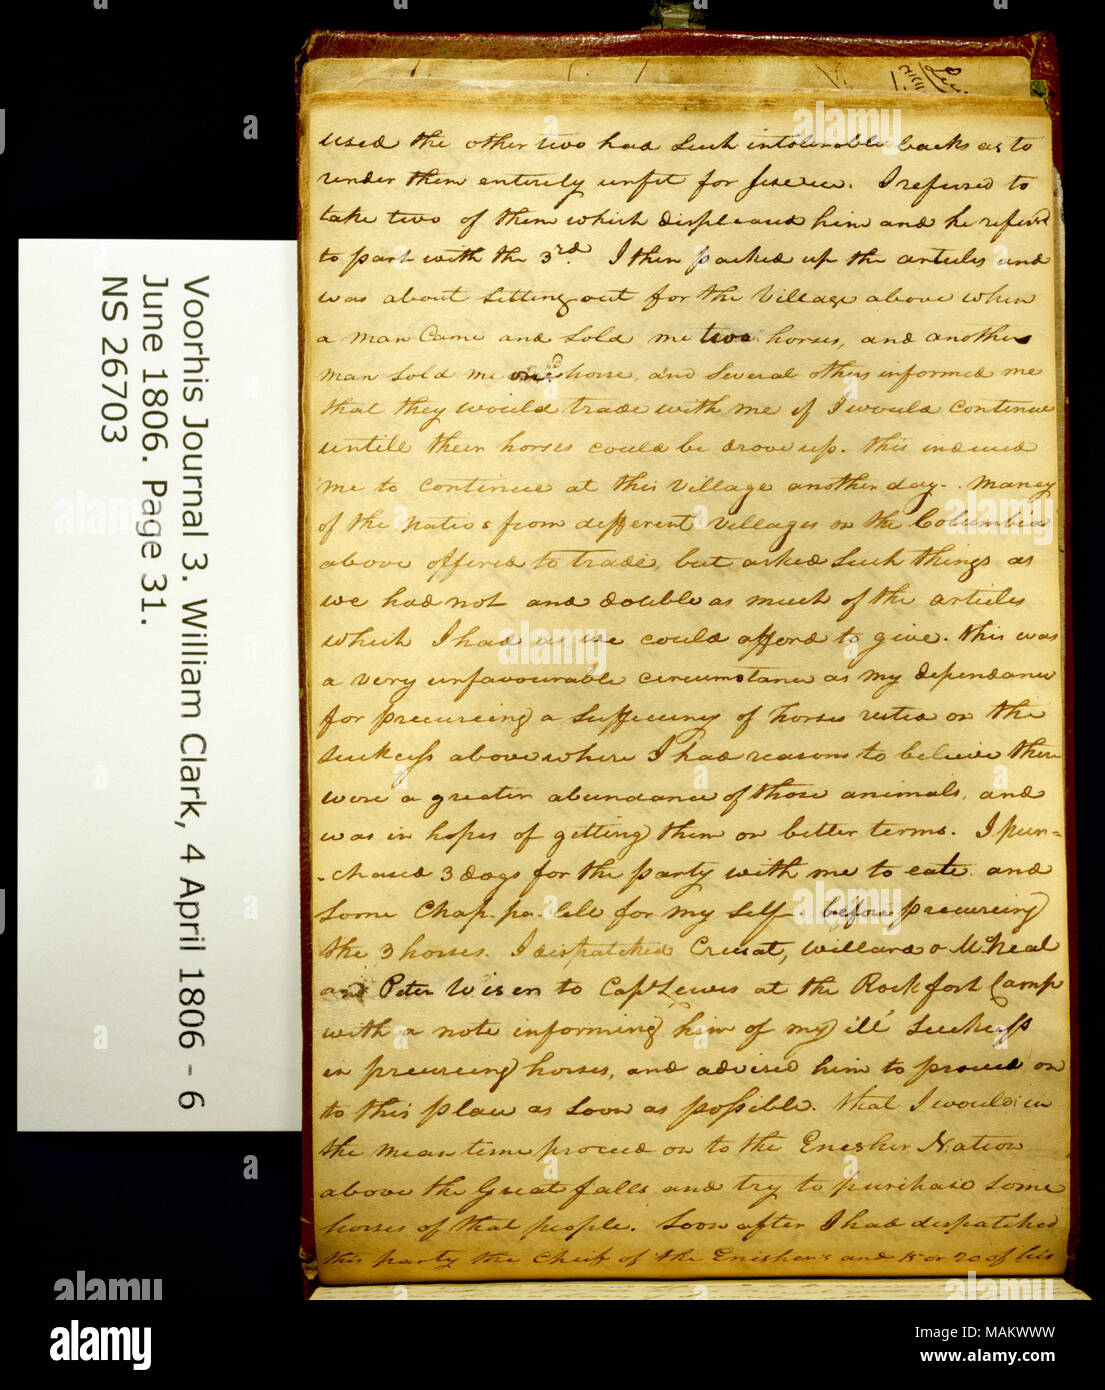 used the other two had Such intolerable backs as to
render them entirely unfit for Service. I refused to
take two of them which displeased him and he refused
to part with the 3rd. I then packed up the articles and
was about Setting out for the Village above when
a man Came and Sold me two horses, and another
man Sold me one horse, and Several others informed me
that they would trade with me if I would Continue
untill their horses could be drove up. this induced
me to Continue at this Village another day. Maney
of the nativs from different villages on the Columbia
above offered to trade, but asked Such things as
we had not and double as much of the articles
which I had as we could afford to give. this was
a very unfavourable circumstance as my dependance
for precureing a Suffiency of horses rested on the
Suckcess above where I had reasons to believe there
were a greater abundance of those animals, and
was in hopes of getting them on better terms. I pur=
-chased 3 dogs for the party with me to eate and
Some Chap-pa-lell for my Self. before precureing
the 3 horses. I dispatched Crusat, Willard & McNeal
and Peter Wisen to Capt Lewis at the Rockfort Camp
with a note informing him of my ill Suckcess
in precureing horses, and advised him to proceed on
to this place as Soon as possible. that I would in
the mean time proceed on to the Enesher Nation
above the Great falls and try to purchase Some
horses of that people. Soon after I had dispatched
this party the Cheif of the Enisher's and 15 or 20 of his
Voorhis Journal 3. William Clark, 4 April 1806 - 6
June 1806. Page 31.
NS 26703
alamy
Image ID: MAKWWW
www.alamy.com